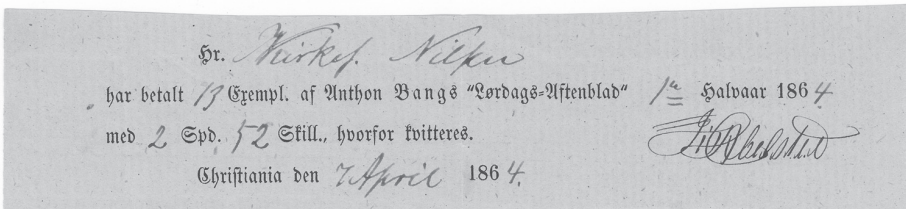 Hr. Kirkes. Nilsen
har betalt 13 Exempl. af Anthon Bangs "Lørdags-Aftenblad" 1ste Halvaar 1864
med 2 Spd. 52 Skill., hvorfor kvitteres.
Christiania den 7 April 1864.